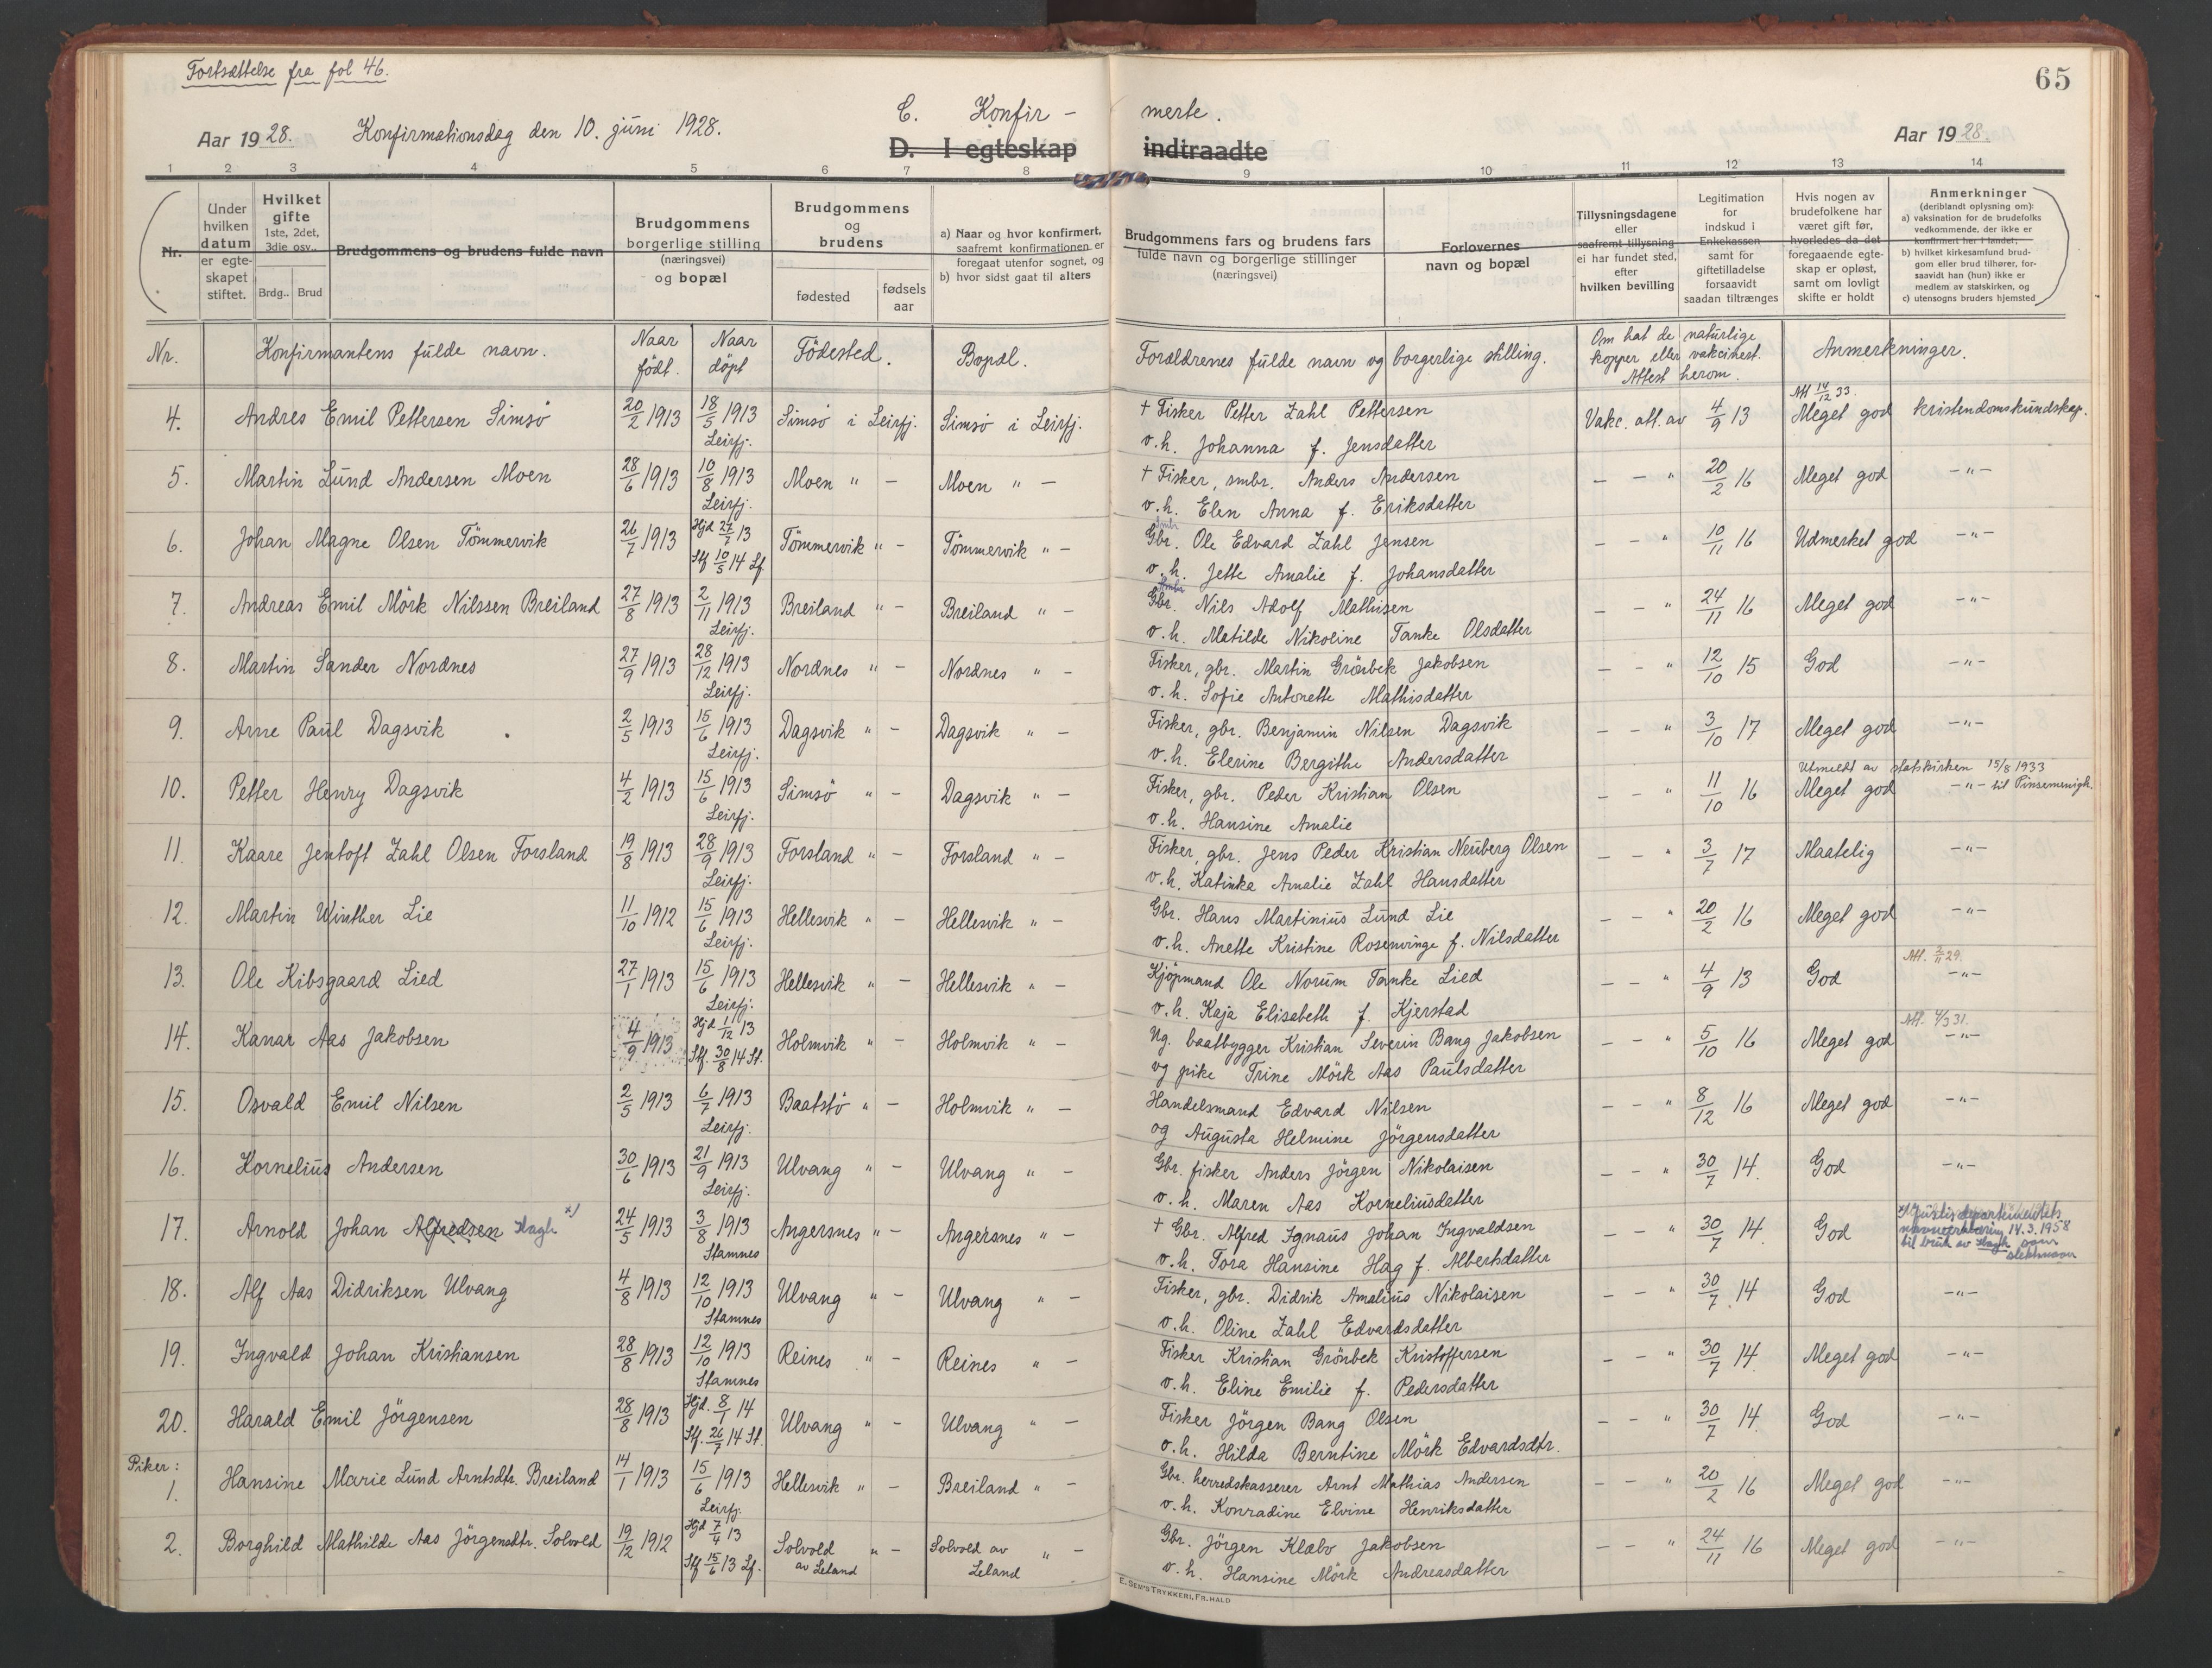 Fortsættelse fra fol 46.
65
Aar 1928. Konfirmationsdag den 10. juni 1928.
C. Konfir - merte.
D. I egteskap indtraadte
Aar 1928.
1 2 3 4 5 6 7 8 9 10 11 12 13 14
Nr.
Under hvilken datum er egte-skapet stiftet.
Hvilket gifte 1ste, 2det, 3die osv..
Brdg.. Brud
Brudgommens og brudens fulde navn
Brudgommens borgerlige stilling (næringsvei) og bopæl
Brudgommens og brudens
fødested
fødsels aar
a) Naar og hvor konfirmert, saafremt konfirmationen er foregaat utenfor sognet, og
b) hvor sidst gaat til alters
Brudgommens fars og brudens fars fulde navn og borgerlige stillinger (næringsvei)
Forlovernes navn og bopæl
Tillysningsdagene eller saafremt tillysning ei har fundet sted, efter hvilken bevilling
Legitimation for indskud i Enkekassen samt for giftetilladelse forsaavidt saadan tiltrænges
Hvis nogen av brudefolkene har været gift før, hvorledes da det foregaaende egte-skap er opløst, samt om lovligt skifte er holdt
Anmerkninger (deriblandt oplysning om):
a) vaksination for de brudefolks vedkommende, der ikke er konfirmert her i landet;
b) hvilket kirkesamfund brud-gom eller brud tilhører, for-saavidt han (hun) ikke er medlem av statskirken, og
c) utensogns bruders hjemsted
Nr. Konfirmantens fulde navn. Naar født. Naar døpt Födested. Bopæl. Forældrenes fulde navn og borgerlige stilling. Om hat de naturlige kopper eller vakcinert. Attest herom. Anmerkninger.
Att 14/12 33.
4. Andres Emil Pettersen Simsö 20/2 1913 18/5 1913 Leirfj. Simsö i Leirfj. Simsö i Leirfj. + Fisker Petter Zahl Pettersen Vakc. att. av 4/9 13 Meget god kristendomskundskap.
o.h. Johanna f. Jensdatter
5. Martin Lund Andersen Moen 28/6 1913 10/8 1913 Leirfj. Moen " - Moen " - + Fisker, smbr. Anders Andersen - - " 20/2 16 Meget god -"-
o.h. Elen Anna f. Eriksdatter
6. Johan Magne Olsen Tömmervik 26/7 1913 Hjd 27/7 13 Stf 10/5 14 Lf. Tömmervik " - Tömmervik " - Gbr. Ole Edvard Zahl Jensen - - " 10/11 16 Udmerket god -"-
o.h. Jette Amalie f. Johansdatter
7. Andreas Emil Mörk Nilssen Breiland 27/8 1913 2/11 1913 Leirfj. Breiland " - Breiland " - Gbr. Nils Adolf Mathisen - - " 24/11 16 Meget god -"-
o.h. Matilde Nikoline Tanke Olsdatter
8. Martin Sander Nordnes 27/9 1913 28/12 1913 Leirfj. Nordnes " - Nordnes " - Fisker, gbr. Martin Grönbek Jakobsen - - " 12/10 15 God -"-
o.h. Sofie Antonette Mathisdatter
9. Arne Paul Dagsvik 2/5 1913 15/6 1913 Leirfj. Dagsvik " - Dagsvik " - Fisker, gbr. Benjamin Nilsen Dagsvik - - " 3/10 17 Meget god -"-
o.h. Elerine Bergithe Andersdatter
Utmeldt av statskirken 15/8 1933
10. Petter Henry Dagsvik 4/2 1913 15/6 1913 Leirfj. Simsö " - Dagsvik " - Fisker, gbr. Peder Kristian Olsen - - " 11/10 16 Meget god -"- til Pinsemenigh.
o.h. Hansine Amalie
11. Kaare Jentoft Zahl Olsen Forsland 19/8 1913 28/9 1913 Leirfj. Forsland " - Forsland " - Fisker, gbr. Jens Peder Kristian Neuberg Olsen - - " 3/7 17 Maatelig -"-
o.h. Katinka Amalie Zahl Hansdatter
12. Martin Winther Lie 11/10 1912 15/6 1913 Leirfj. Hellesvik " - Hellesvik " - Gbr. Hans Martinius Lund Lie - - " 20/2 16 Meget god -"-
o.h. Anette Kristine Rosenvinge f. Nilsdatter
Att. 2/11 29.
13. Ole Kibsgaard Lied 27/1 1913 15/6 1913 Leirfj. Hellesvik " - Hellesvik " - Kjöpmand Ole Norum Tanke Lied - - " 4/9 13 God -"-
o.h. Kaja Elisabeth f. Kjerstad
14. Kanar Aas Jakobsen 4/9 1913 Hjd 1/12 13 Stf. 30/8 14 St. Holmvik " - Holmvik " - Ug. baatbygger Kristian Severin Bang Jakobsen - - " 5/10 16 Meget god -"-
og pike Trine Mörk Aas Paulsdatter
15. Osvald Emil Nilsen 2/5 1913 6/7 1913 Leirfj. Baatstö " - Holmvik " - Handelsmand Edvard Nilsen - - " 8/12 16 Meget god -"-
og Augusta Helmine Jörgensdatter
16. Kornelius Andersen 30/6 1913 21/9 1913 Leirfj. Ulvang " - Ulvang " - Gbr. fisker Anders Jörgen Nikolaisen - - " 30/7 14. God -"-
o.h. Maren Aas Korneliusdatter
17. Arnold Johan Alfredsen Hagh x) 24/5 1913 3/8 1913 Stamnes Angersnes " - Angersnes " - + Gbr. Alfred Ignaus Johan Ingvaldsen - - " 30/7 14. God
x) Justisdepartementets
navneerklæring 14.3.1958
til bruk av Hagh som
slektsnavn
o.h. Tora Hansine Hag f. Albertsdatter
18. Alf Aas Didriksen Ulvang 4/8 1913 12/10 1913 Stamnes Ulvang " - Ulvang " - Fisker, gbr. Didrik Amalius Nikolaisen - - " 30/7 14 God -"-
o.h. Oline Zahl Edvardsdatter
19. Ingvald Johan Kristiansen 28/8 1913 12/10 1913 Stamnes Reines " - Reines " - Fisker Kristian Grönbek Kristoffersen - - " 30/7 14. Meget god -"-
o.h. Eline Emilie f. Pedersdatter
20. Harald Emil Jörgensen 28/8 1913 Hjd. 8/1 14 Stf. 26/7 14 St. Ulvang " - Ulvang " - Fisker Jörgen Bang Olsen - - " 30/7 14. God -"-
o.h. Hilda Berntine Mörk Edvardsdtr.
Piker:
1. Hansine Marie Lund Arntsdtr. Breiland 14/1 1913 15/6 1913 Leirfj. Hellesvik " - Breiland " - Gbr. herredskasserer Arnt Mathias Andersen - - " 20/2 16 Meget god -"-
o.h. Konradine Elvine Henriksdatter
2. Borghild Mathilde Aas Jörgensdtr. Solvold 19/12 1912 Hjd 7/4 13 Stf 15/6 13 Lf. Solvold av Leland " - Solvold av Leland " - Gbr. Jörgen Klæbo Jakobsen - - " 24/11 16 Meget god -"-
o.h. Hansine Mörk Andreasdatter
E. SEM'S TRYKKERI, FR.HALD